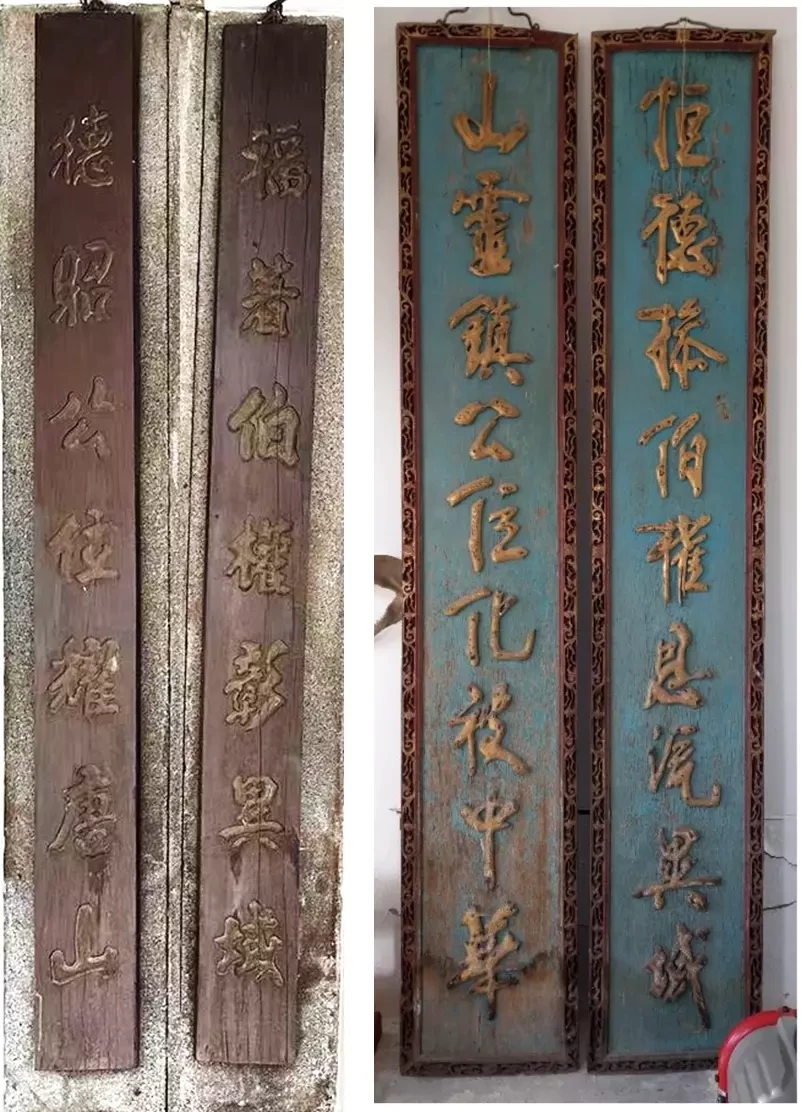 福著伯權彰異域
德昭公位耀唐山
恒德伯權恩汎異域
山靈鎮公位化被中華